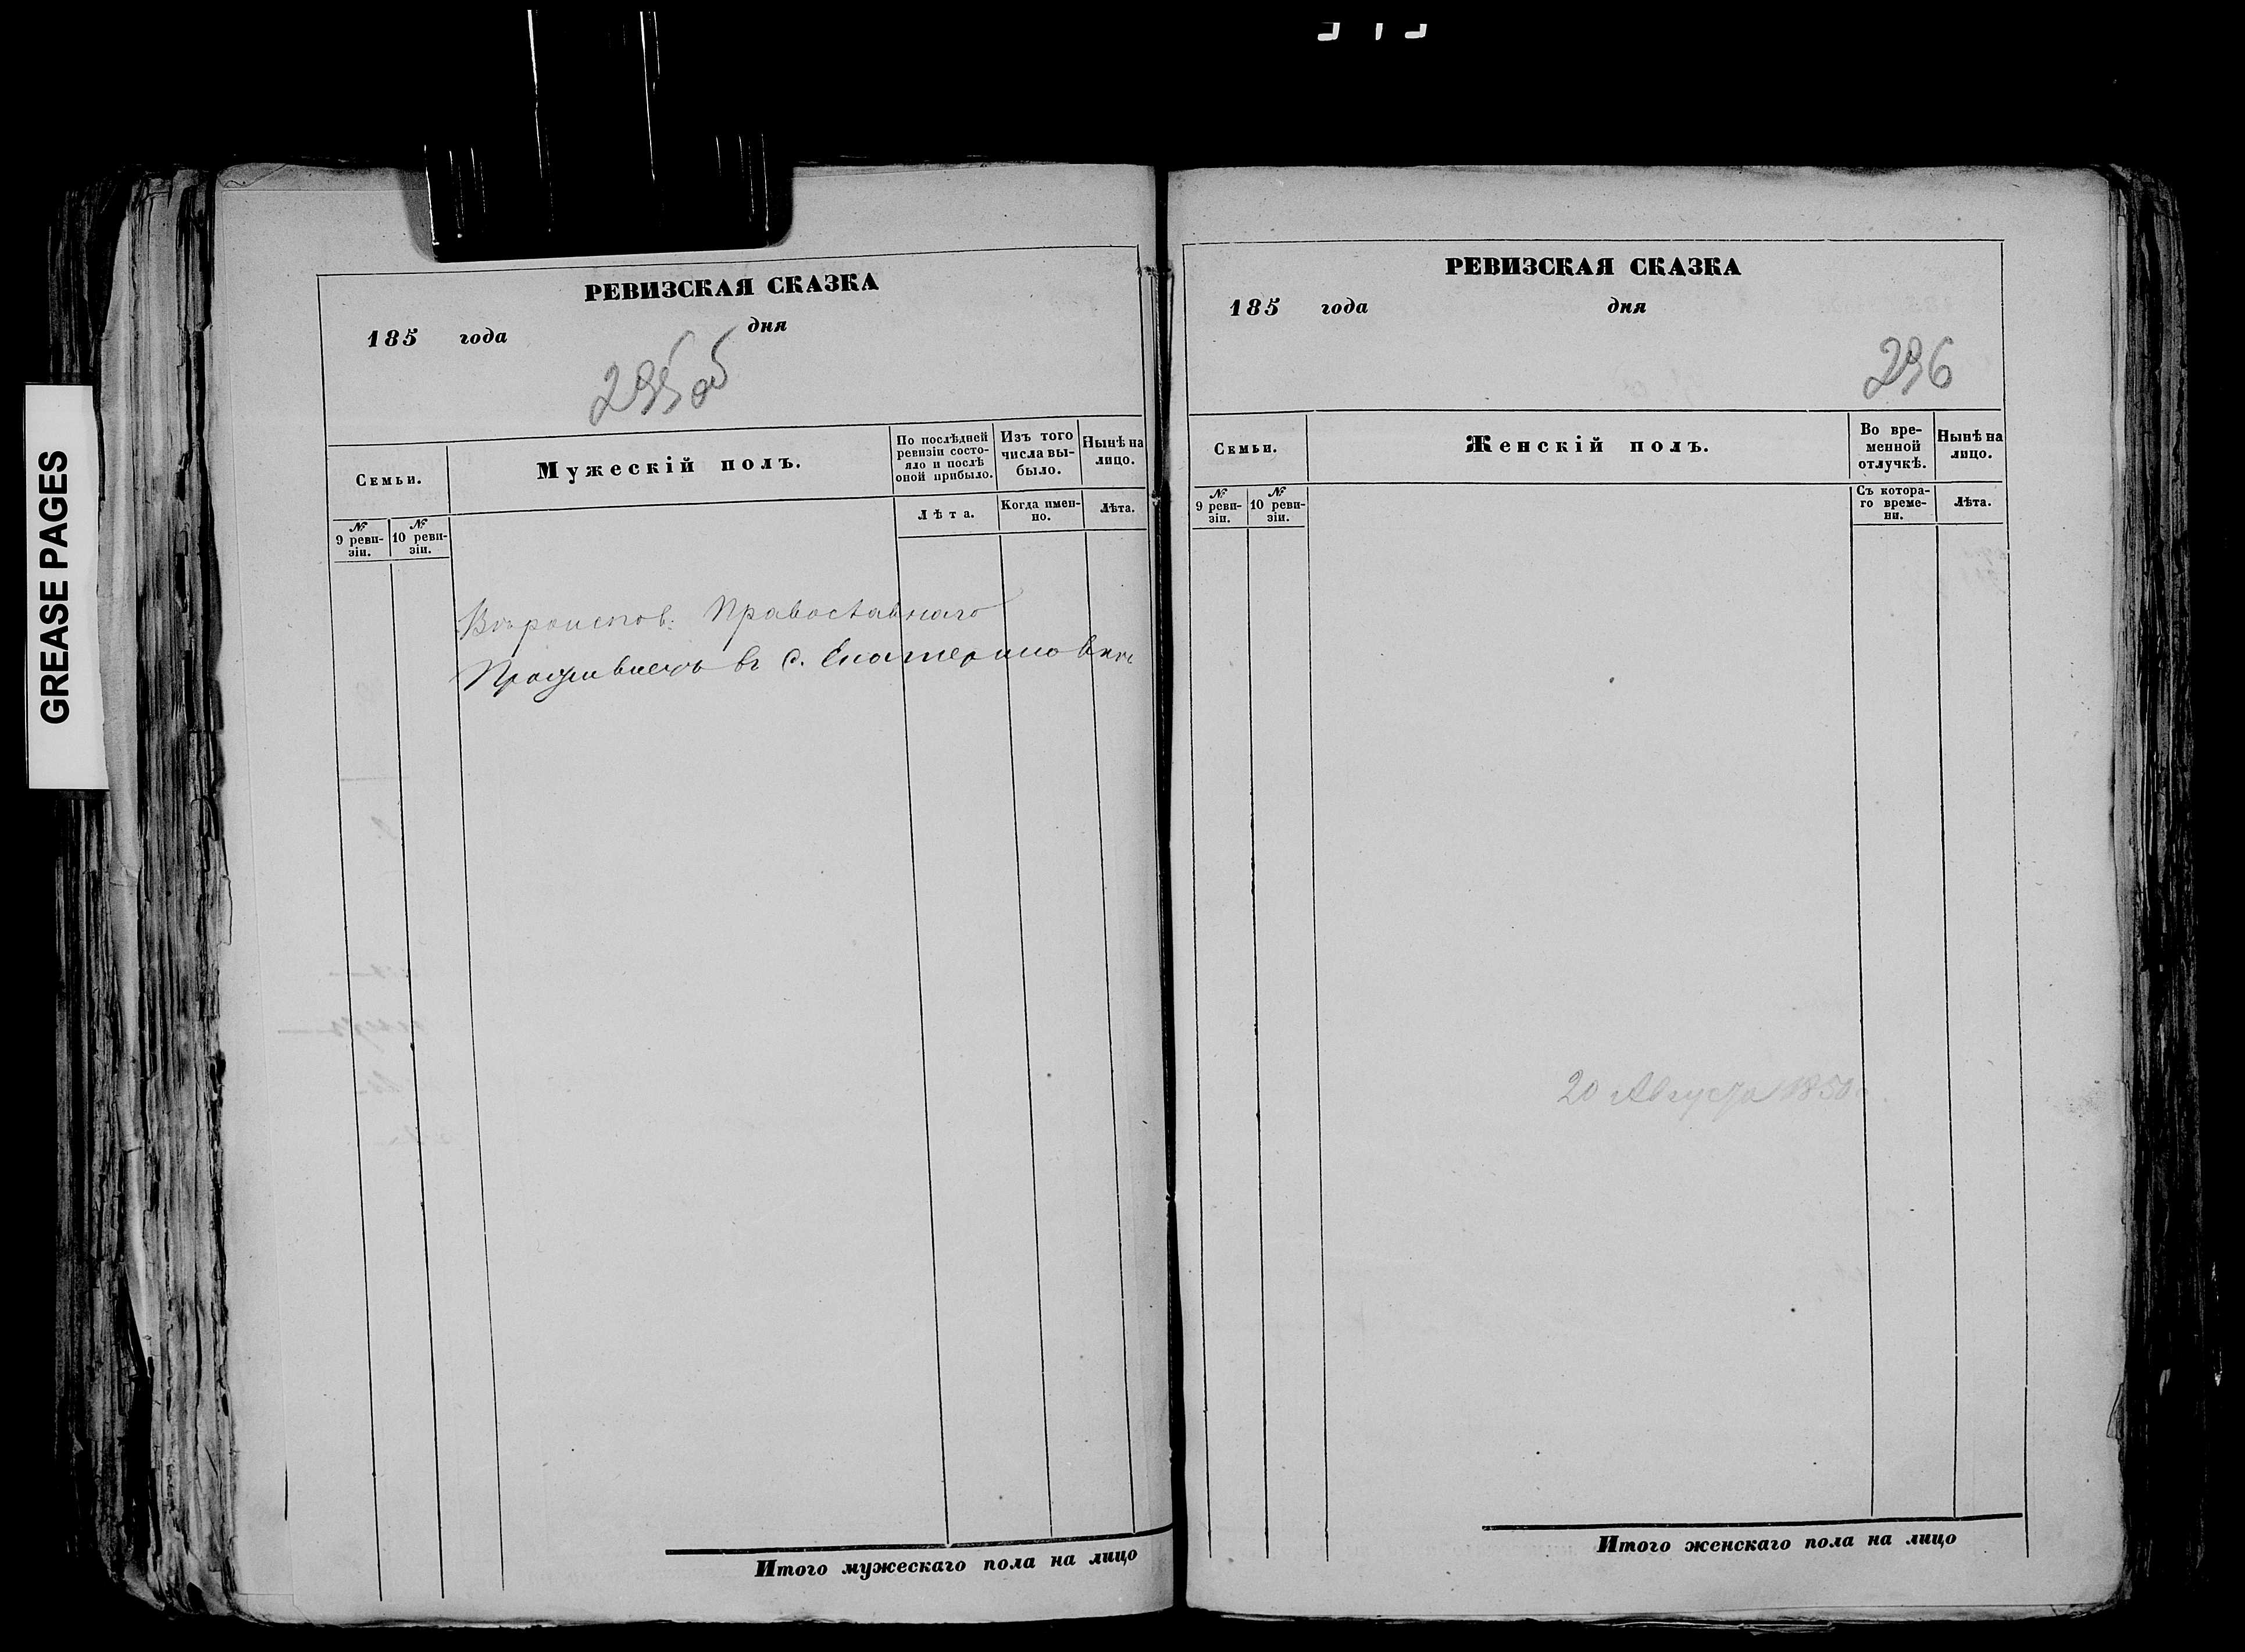 GREASE PAGES
РЕВИЗСКАЯ СКАЗКА
185 года дня
295 об
Семьи.
Мужескій полъ.
По послѣдней ревизіи состо-
яло и послѣ
оной прибыло.
Изъ того
числа вы-
было.
Нынѣ на
лицо.
№
9 реви-
зіи.
№
10 реви-
зіи.
Лѣта.
Когда имен-
но.
Лѣта.
Вѣроисповѣ: Православнаго
въ с. Екатериновкѣ
Итого мужескаго пола на лицо
РЕВИЗСКАЯ СКАЗКА
185 года дня
296
Семьи.
Женскій полъ.
Во вре-
менной
отлучкѣ.
Нынѣ на
лицо.
№
9 реви-
зіи.
№
10 реви-
зіи.
Съ котора-
го време-
ни.
Лѣта.
20 Августа 1850 г.
Итого женскаго пола на лицо